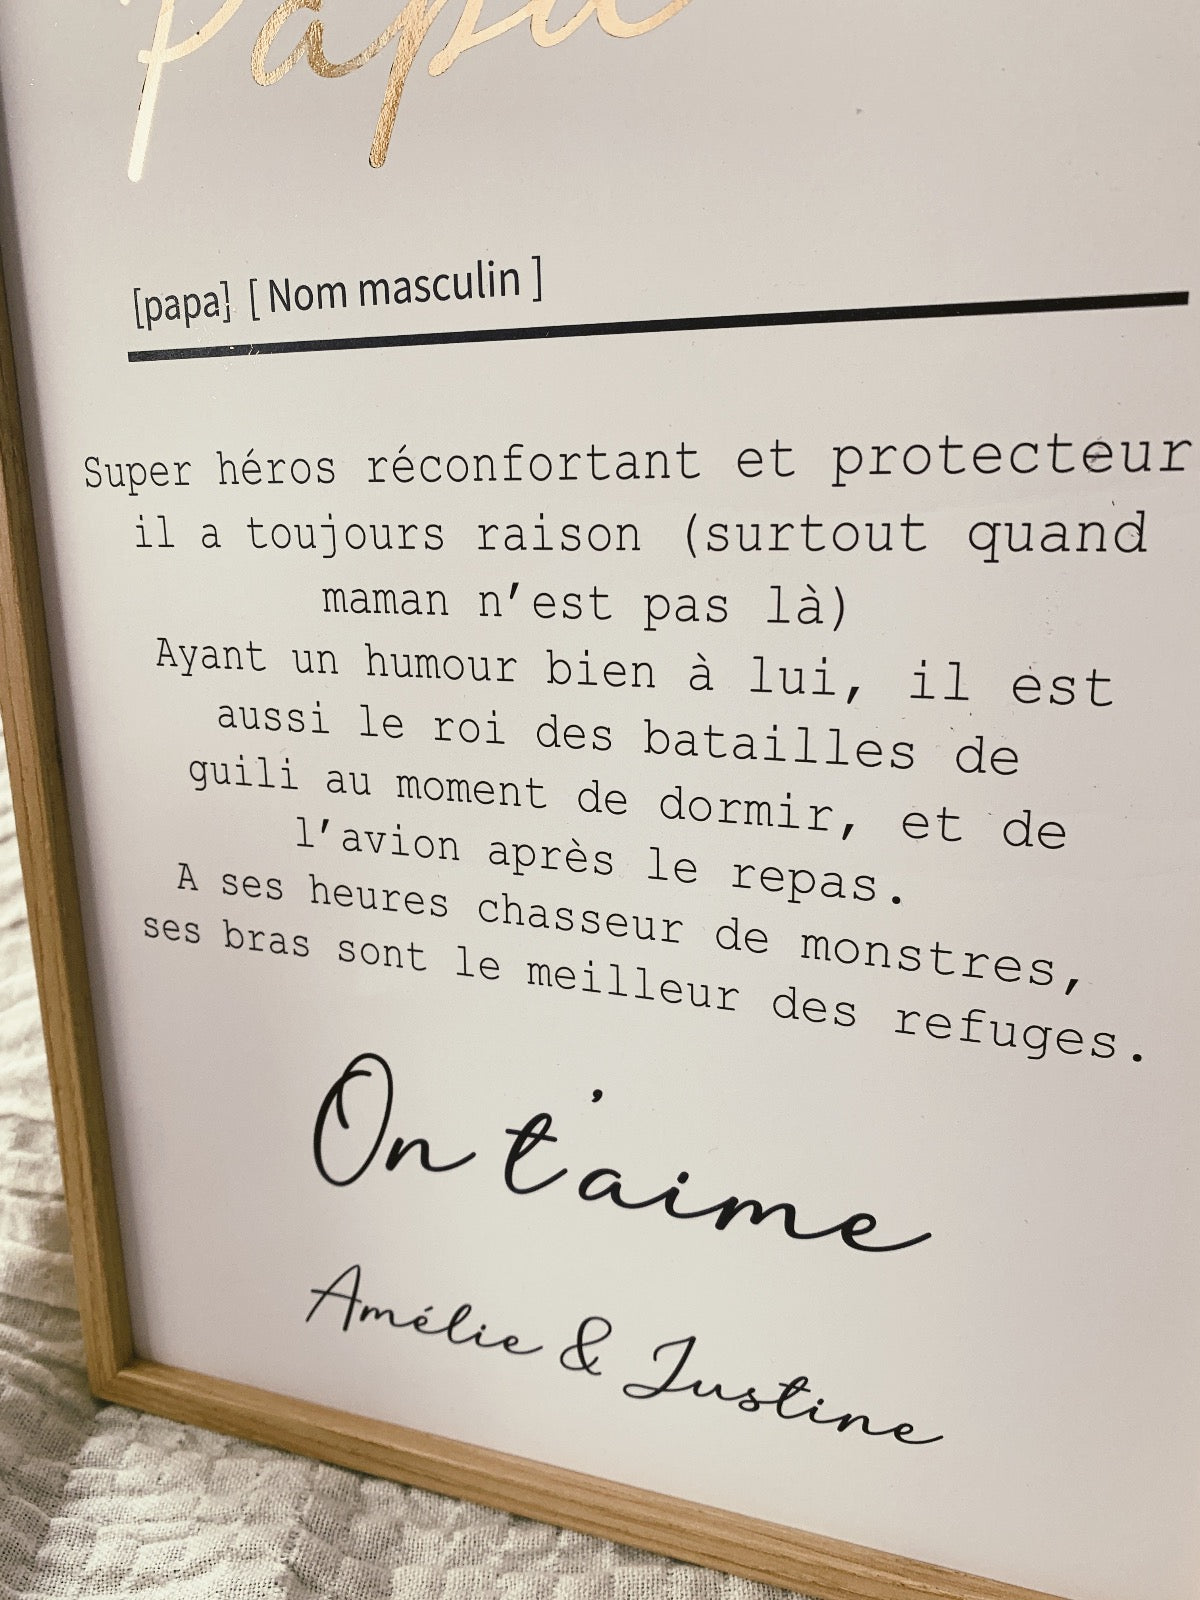 Papa
[papa] [ Nom masculin ]
Super héros réconfortant et protecteur
il a toujours raison (surtout quand
maman n'est pas là)
Ayant un humour bien à lui, il est
aussi le roi des batailles de
guili au moment de dormir, et de
l'avion après le repas.
A ses heures chasseur de monstres,
ses bras sont le meilleur des refuges.
On t'aime
Amélie & Justine